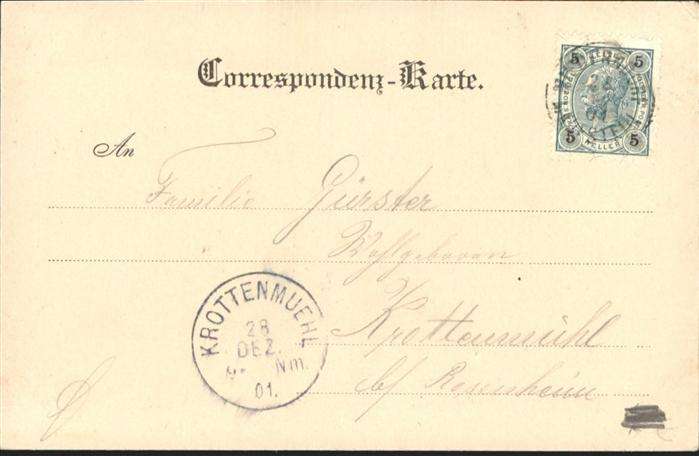 Correspondenz-Karte.
5 5
5 5
HELLER
An
Familie Gürster
Wohlgeboren
Krottenmühl
b/ Rosenheim
KROTTENMUEHL
28
DEZ.
Nm.
01.